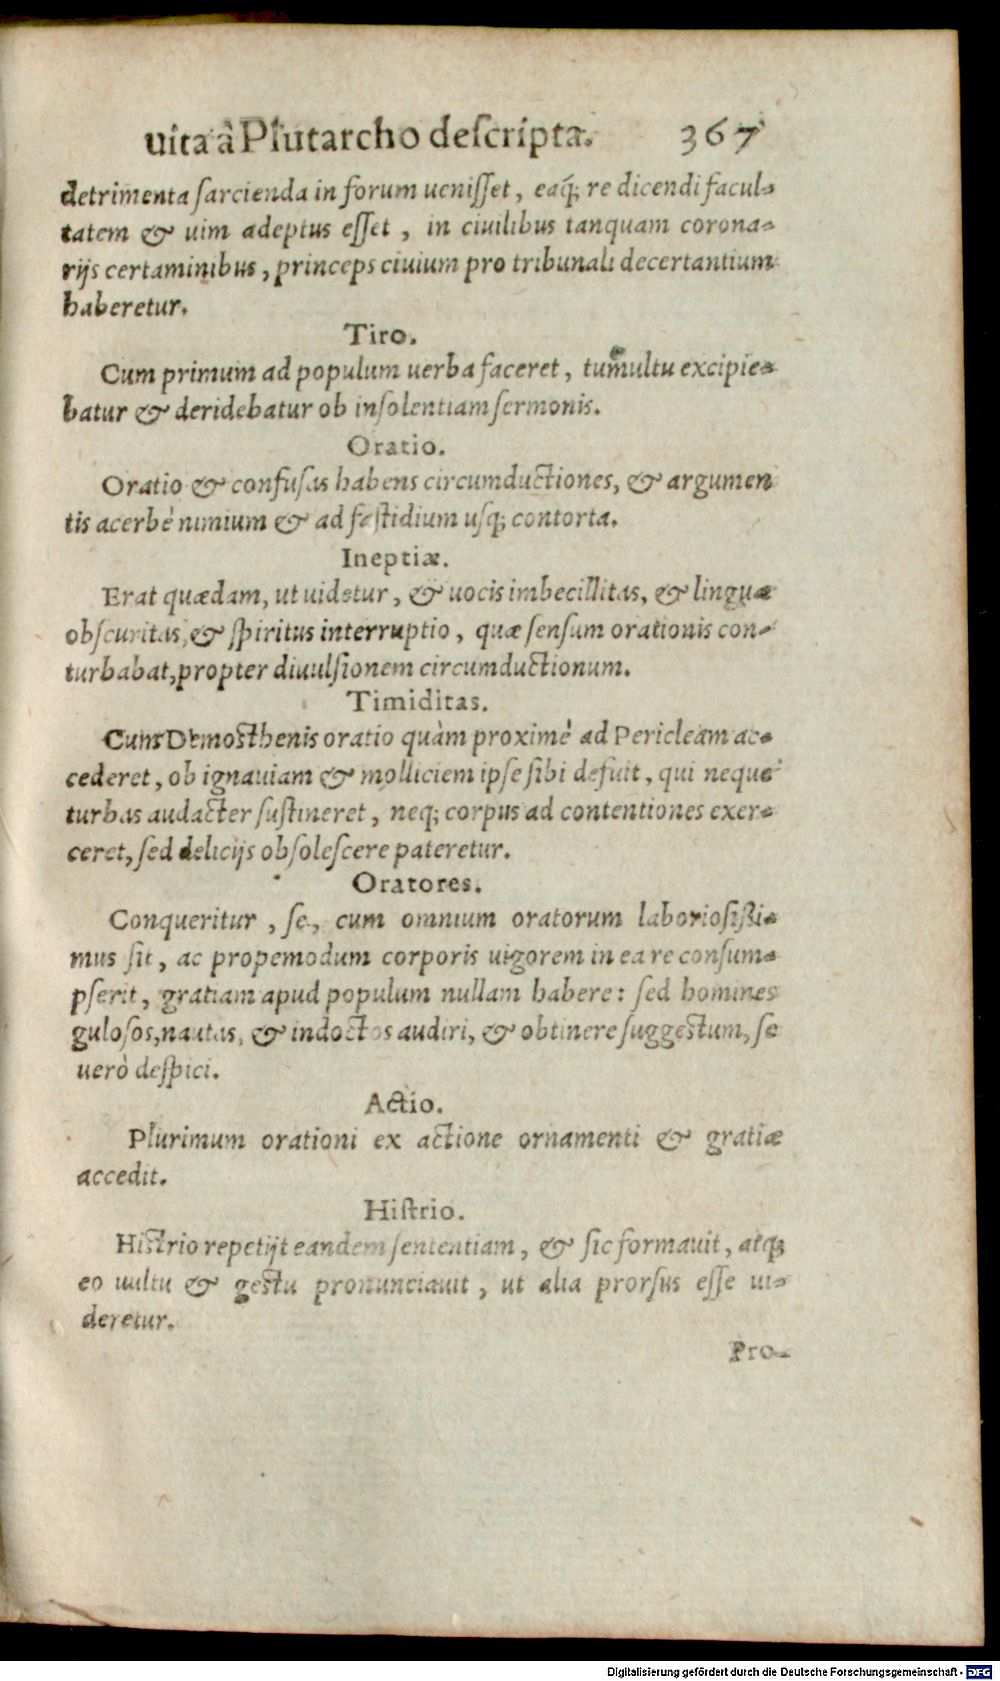 uita à Plutarcho deſcripta. 367
detrimenta ſarcienda in forum ueniſſet, eaq́; re dicendi facul-
tatem & uim adeptus eſſet, in ciuilibus tanquam corona-
rijs certaminibus, princeps ciuium pro tribunali decertantium
haberetur.
Tiro.
Cum primum ad populum uerba faceret, tumultu excipie-
batur & deridebatur ob inſolentiam ſermonis.
Oratio.
Oratio & confuſas habens circumductiones, & argumen
tis acerbè nimium & ad faſtidium uſq; contorta.
Ineptiæ.
Erat quædam, ut uidetur, & uocis imbecillitas, & linguæ
obſcuritas, & ſpiritus interruptio, quæ ſenſum orationis con-
turbabat, propter diuulſionem circumductionum.
Timiditas.
Cum Demoſthenis oratio quàm proximè ad Pericleam ac-
cederet, ob ignauiam & molliciem ipſe ſibi defuit, qui neque
turbas audacter ſuſtineret, neq; corpus ad contentiones exer-
ceret, ſed delicijs obſoleſcere pateretur.
Oratores.
Conqueritur, ſe, cum omnium oratorum laborioſiſſi-
mus ſit, ac propemodum corporis uigorem in ea re conſum-
pſerit, gratiam apud populum nullam habere: ſed homines
guloſos, nautas, & indoctos audiri, & obtinere ſuggeſtum, ſe
uerò deſpici.
Actio.
Plurimum orationi ex actione ornamenti & gratiæ
accedit.
Hiſtrio.
Hiſtrio repetijt eandem ſententiam, & ſic formauit, atq;
eo uultu & geſtu pronunciauit, ut alia prorſus eſſe ui-
deretur.
Pro-
Digitalisierung gefördert durch die Deutsche Forschungsgemeinschaft - DFG